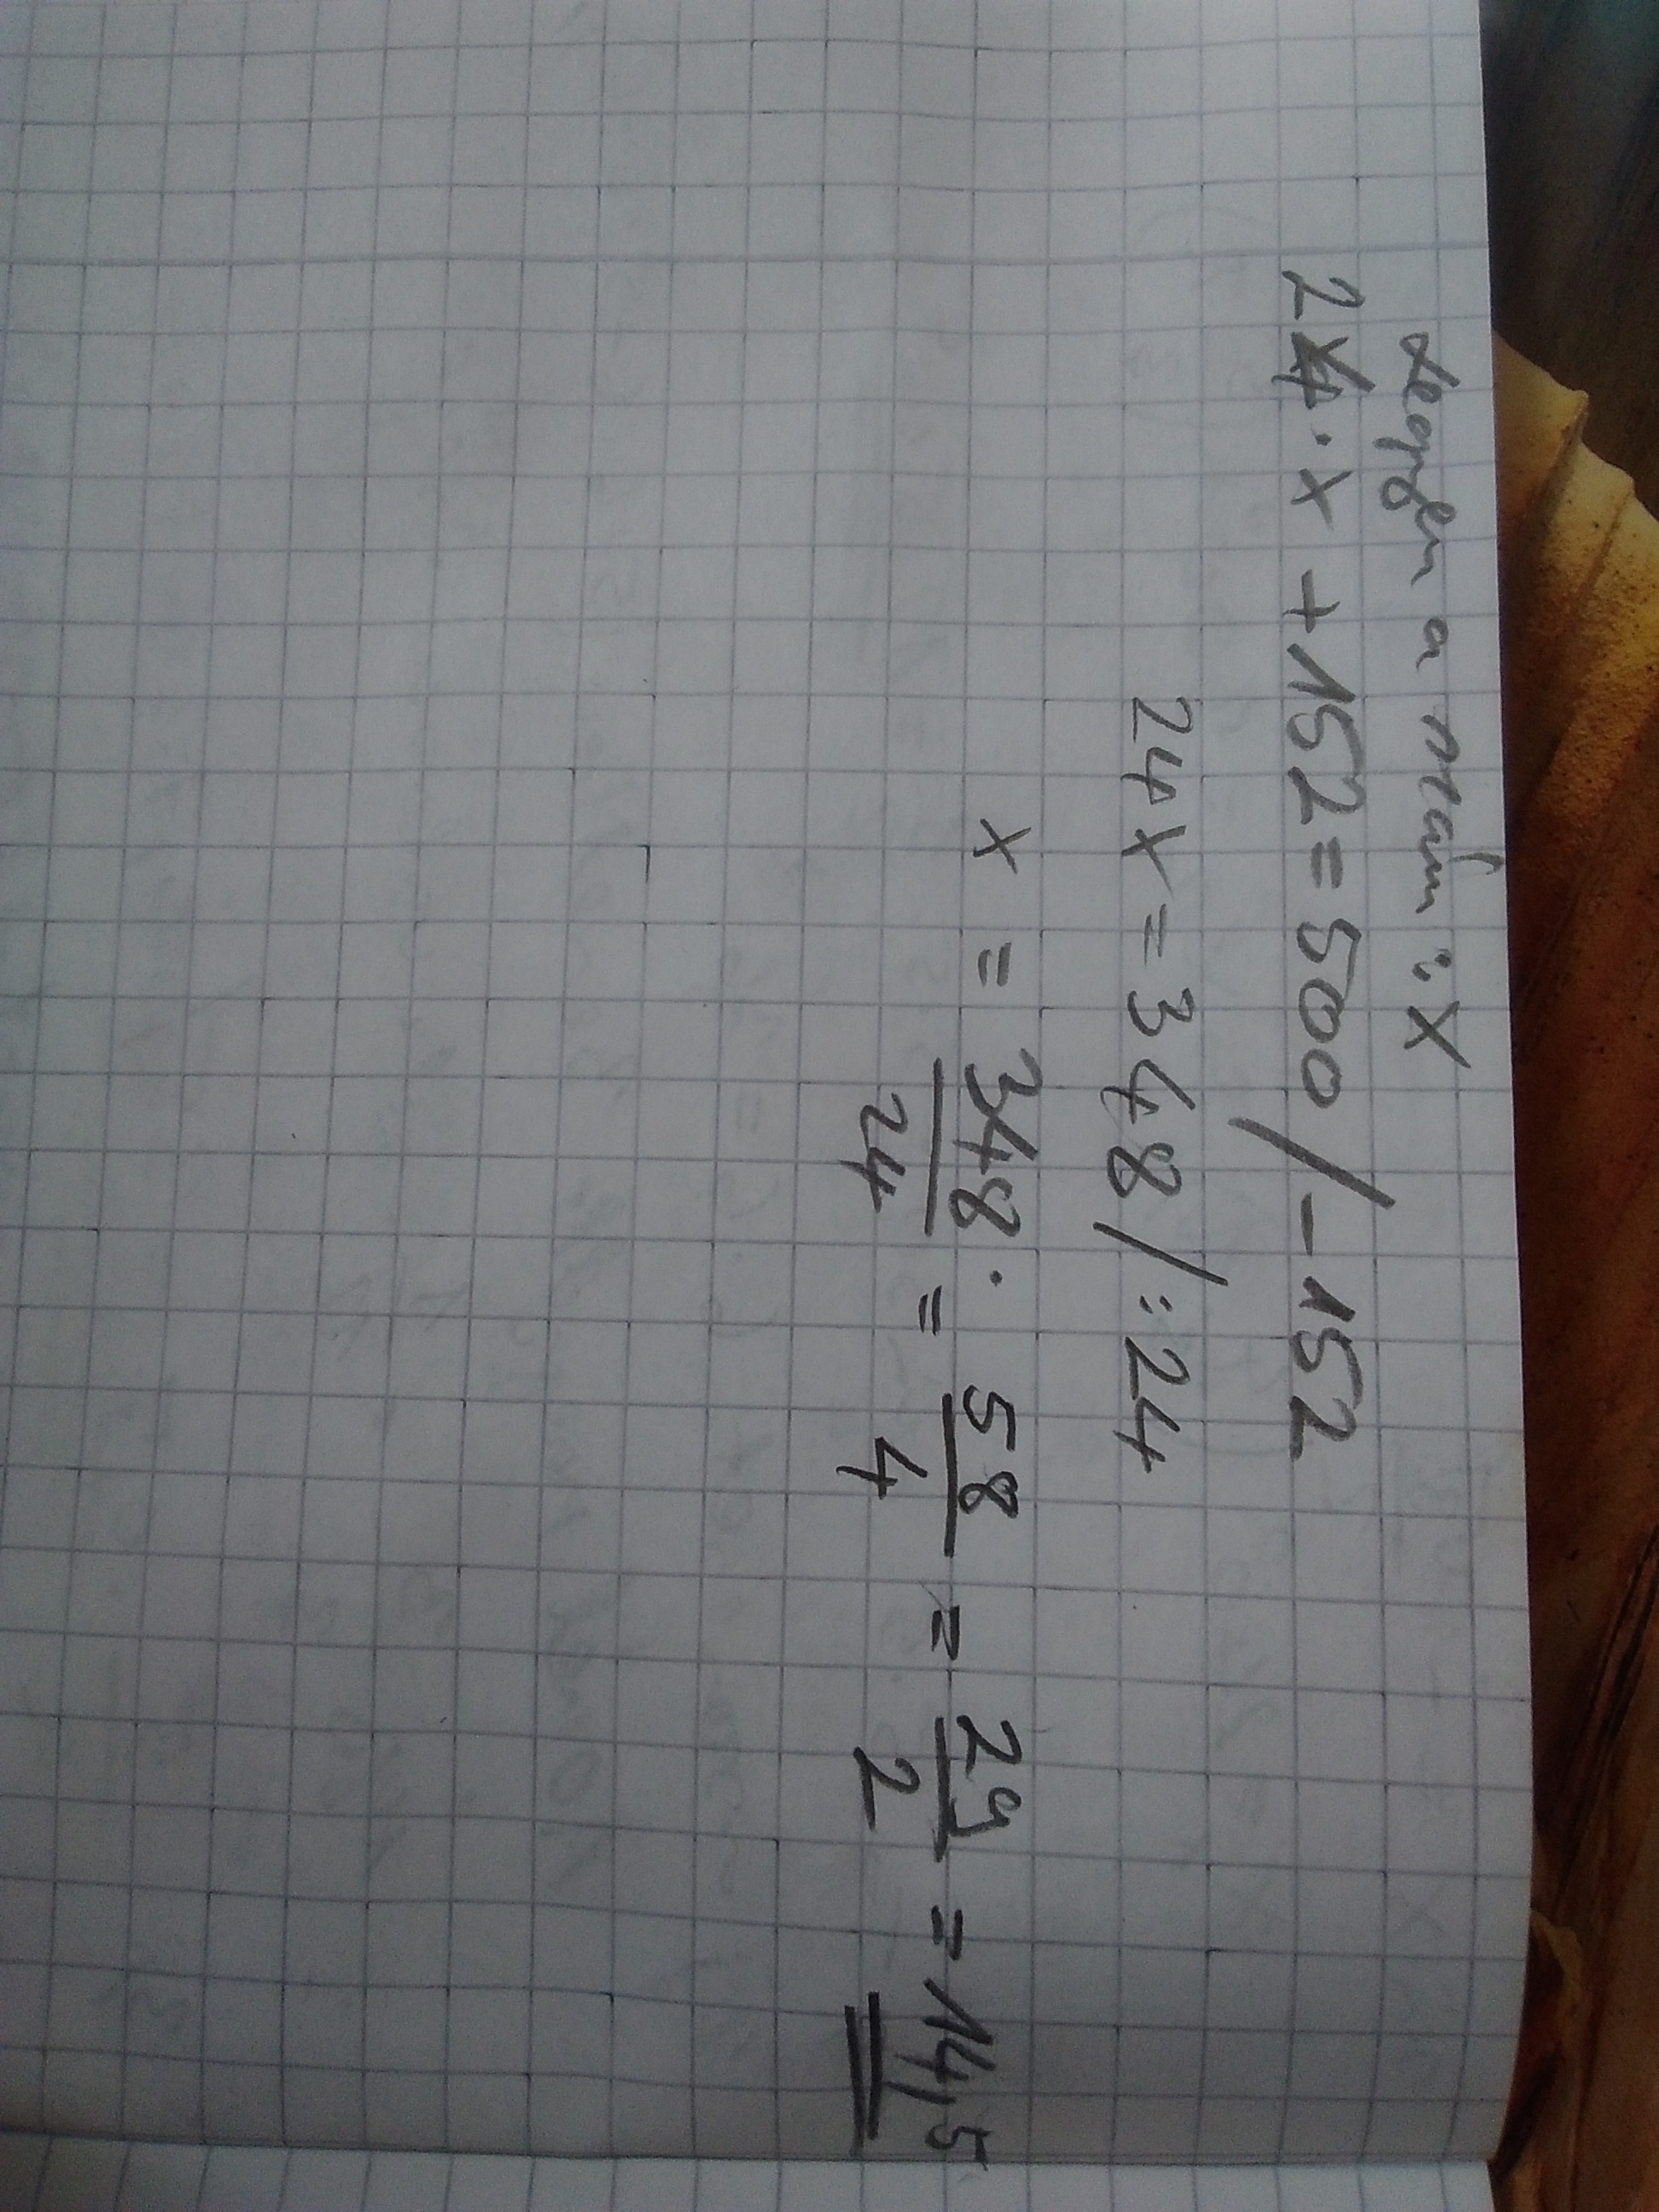 legyen a szám: X
24·x+152=500/-152
24x=348/:24
x = 348/24 = 58/4 = 29/2 = 14,5